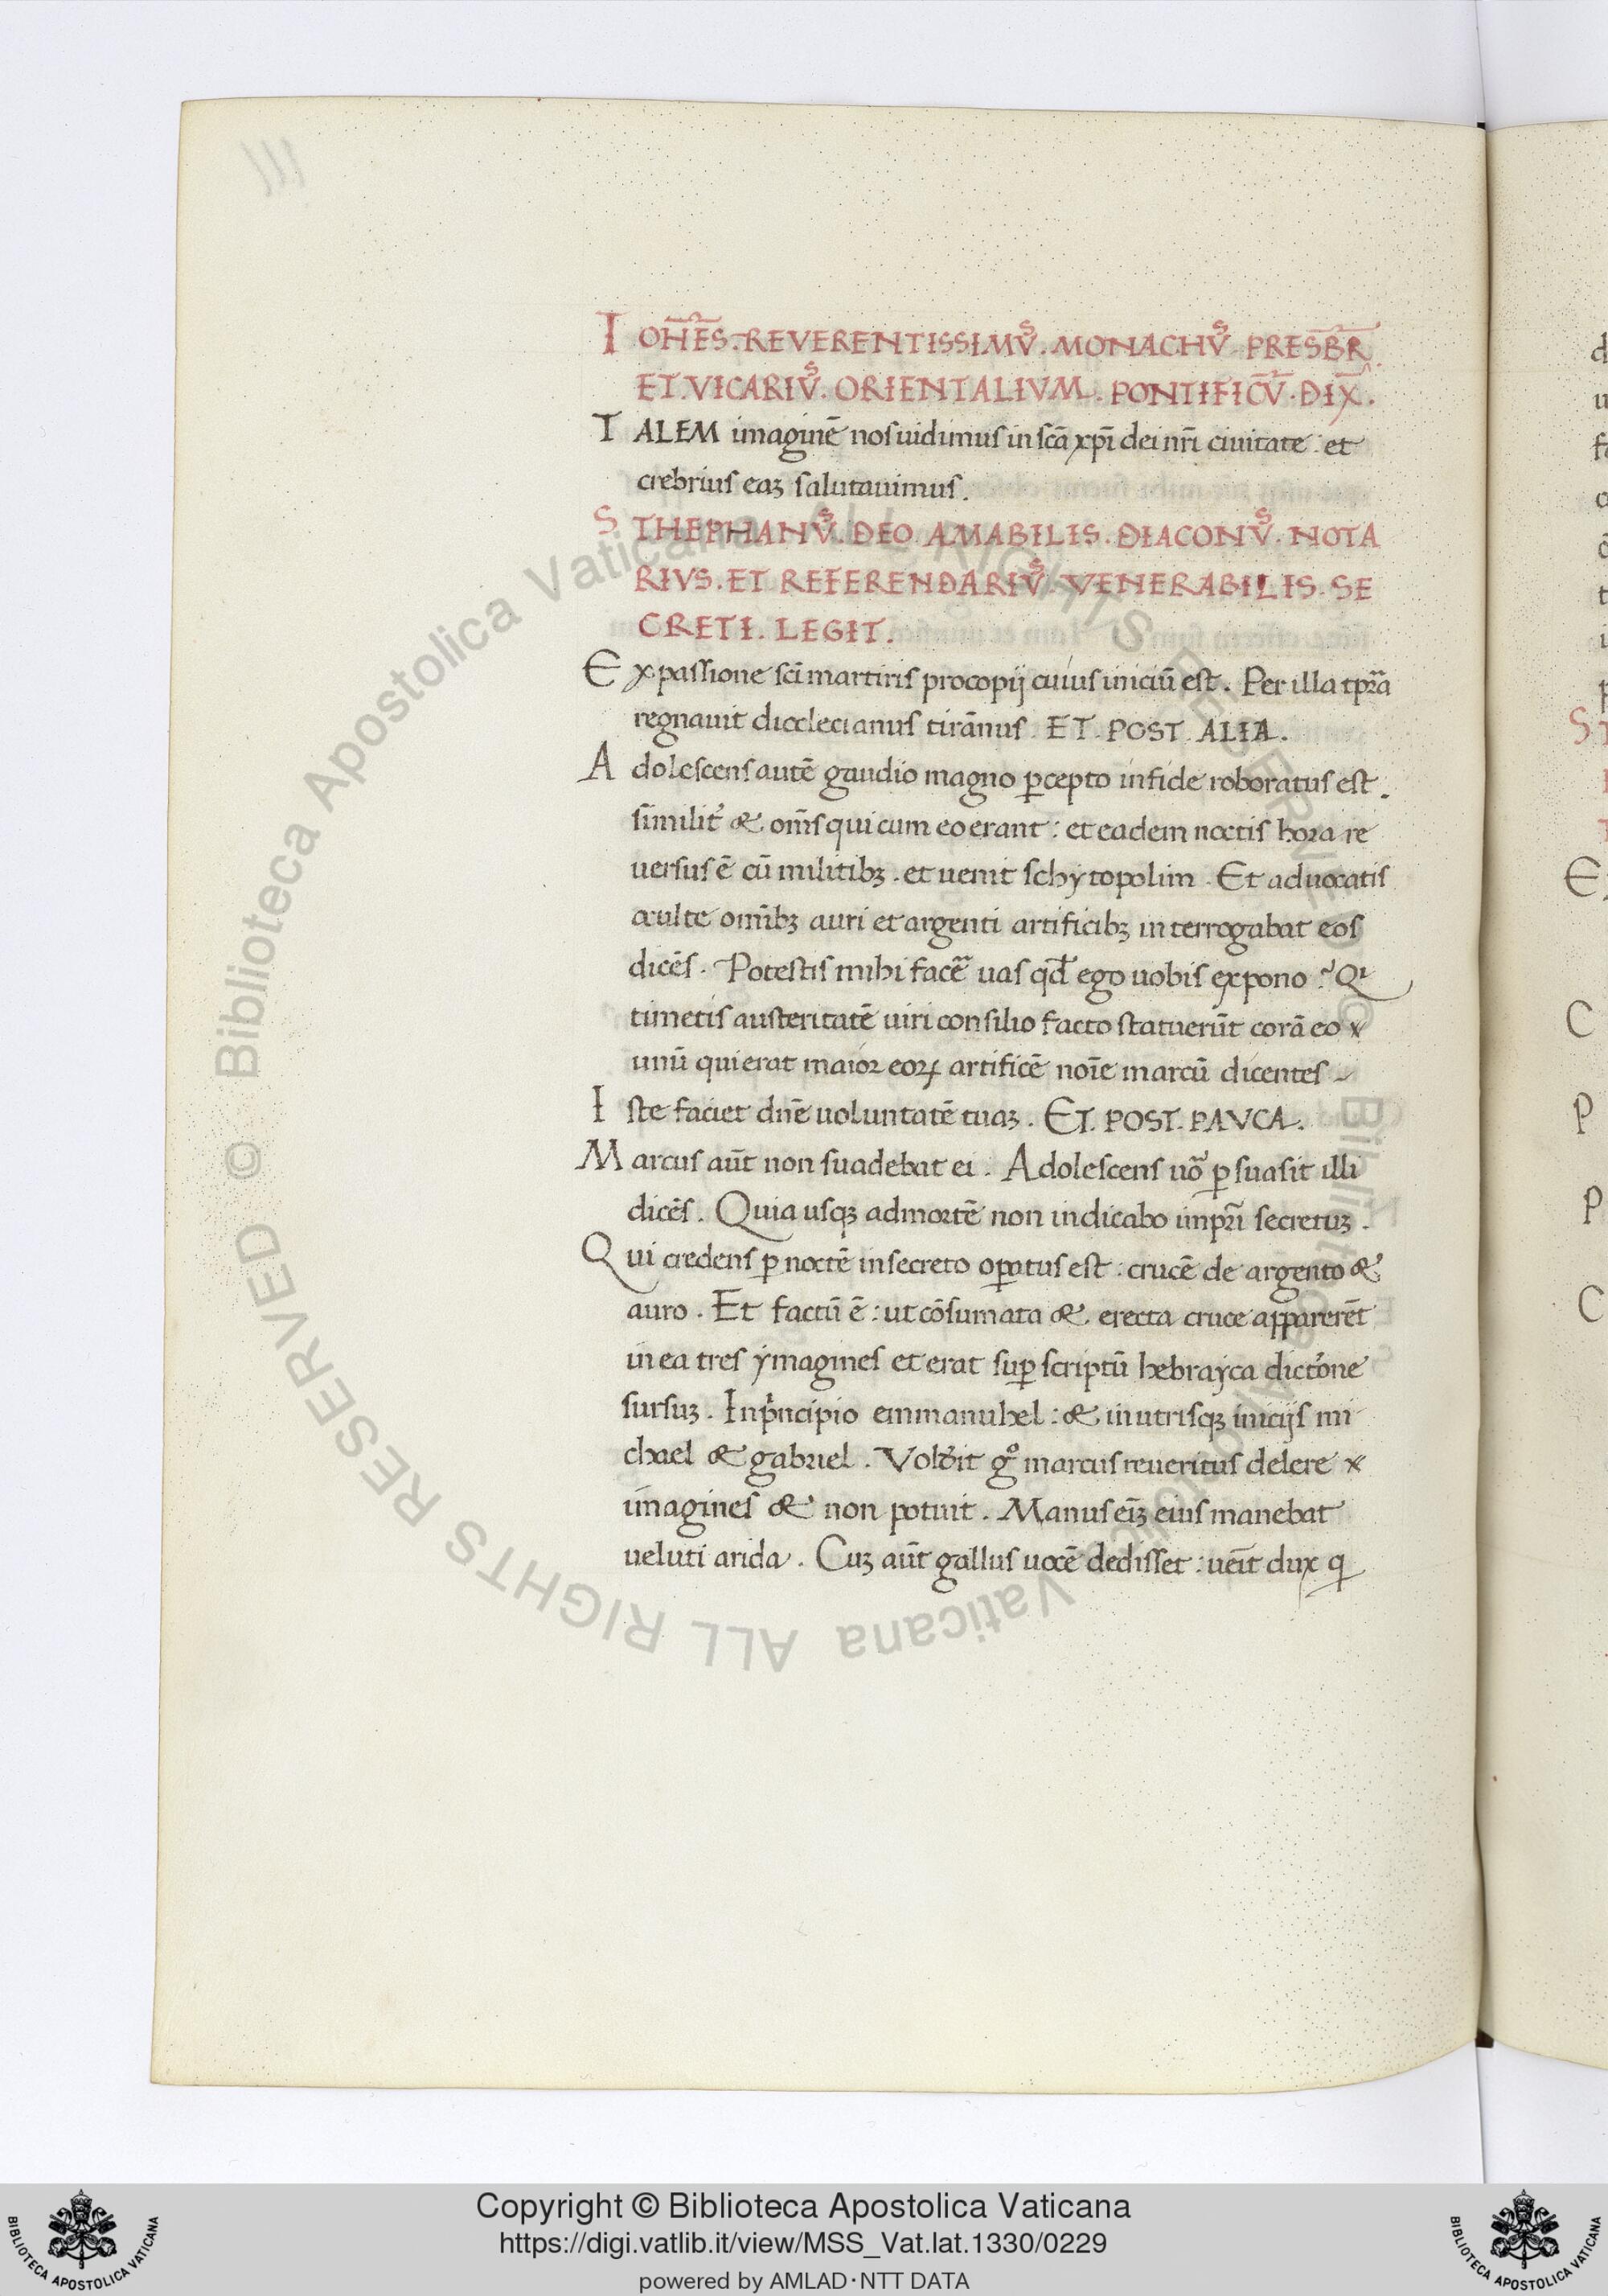 IOHES. REVERENTISSIMVS. MONACHVS. PRESBR
ET. VICARIVS. ORIENTALIVM. PONTIFICV̄. DIX̄.
TALEM imaginē nos uidimus in scā xp̄i dei nr̄i ciuitate : et
crebrius eaꝫ salutauimus.
STHEPHANVS. DEO. AMABILIS. DIACONVS. NOTA
RIVS. ET REFERENDARIVS. VENERABILIS. SE
CRETI. LEGIT.
Ex passione sc̄i martiris procopij cuius iniciū est. Per illa tpr̄a
regnauit dioclecianus tirānus ET. POST. ALIA.
Adolescens autē gaudio magno ꝑcepto in fide roboratus est.
similit̓ & om̄s qui cum eo erant : et eadem noctis hora re
uersus ē cū militibꝫ. et uenit schytopolim. Et aduocatis
oculte om̄ibꝫ auri et argenti artificibꝫ interrogabat eos
dicēs. Potestis mihi facē uas qd̄ ego uobis expono? Qi
timetis austeritatē uiri consilio facto statuerūt corā eo
unū qui erat maior eoꝝ artificē noīe marcū dicentes
Iste faciet dnē uoluntatē tuaꝫ. ET. POST. PAVCA.
Marcus aūt non suadebat ei. Adolescens uō ꝑsuasit illi
dicēs. Quia usqꝫ ad mortē non indicabo impr̄i secretuꝫ.
Qui credens ꝑ noctē in secreto oꝑatus est : crucē de argento &
auro. Et factū ē : ut cōsumata & erecta cruce apparerēt
in ea tres ymagines et erat suꝑ scriptū hebrayca dictōne
sursuꝫ. In pn̓cipio emmanuhel : & in utrisqꝫ inicijs mi
chael & gabriel. Voluit gͦ marcus reueritus delere
imagines & non potuit. Manus eīꝫ eius manebat
ueluti arida. Cuꝫ aūt gallus uocē dedisset : ueīt dux q
Copyright © Biblioteca Apostolica Vaticana
https://digi.vatlib.it/view/MSS_Vat.lat.1330/0229
powered by AMLAD·NTT DATA
© Biblioteca Apostolica Vaticana ALL RIGHTS RESERVED © Biblioteca Apostolica Vaticana ALL RIGHTS RESERVED
BIBLIOTECA APOSTOLICA VATICANA
BIBLIOTECA APOSTOLICA VATICANA